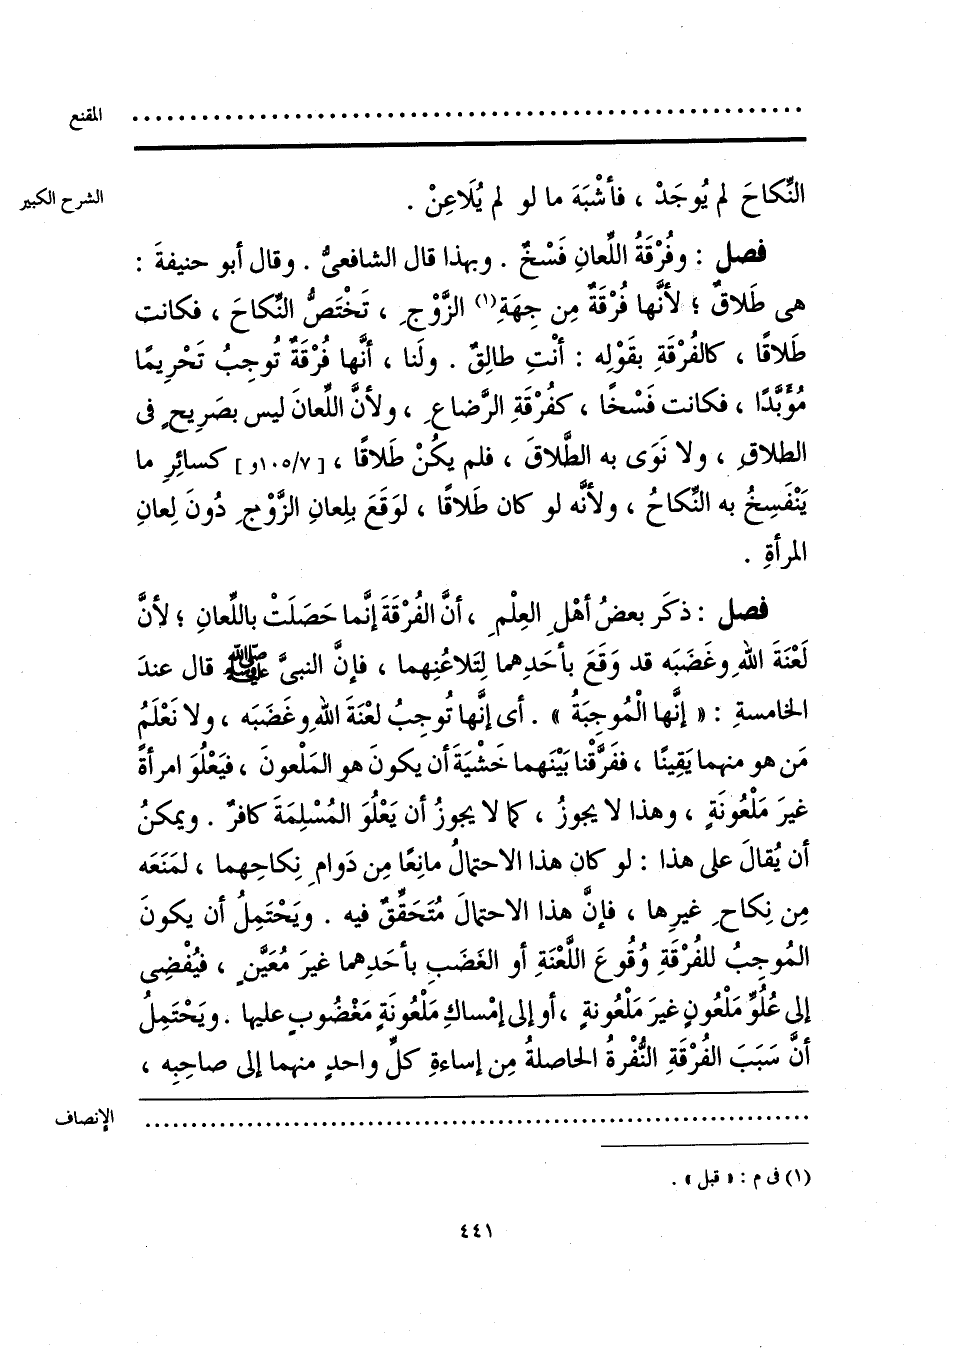 المقنع ..........................................................
الشرح الكبير
النِّكاحَ لم يُوجَدْ ، فأشْبَهَ ما لو لم يُلَاعِنْ .
فصل : وفُرْقَةُ اللِّعانِ فَسْخٌ . وبهذا قال الشافعىُّ . وقال أبو حنيفةَ :
هى طَلاقٌ ؛ لأنَّها فُرْقَةٌ مِن جِهَةِ(١) الزَّوْجِ ، تَخْتَصُّ النِّكاحَ ، فكانت
طَلاقًا ، كالفُرْقَةِ بقَوْلِه : أنْتِ طالِقٌ . ولَنا ، أنَّها فُرْقَةٌ تُوجِبُ تَحْرِيمًا
مُؤَبَّدًا ، فكانت فَسْخًا ، كفُرْقَةِ الرَّضاعِ ، ولأنَّ اللِّعانَ ليس بصَرِيحٍ فى
الطلاقِ ، ولا نَوَى به الطَّلاقَ ، فلم يكُنْ طَلاقًا ، [ ٧/١٠٥و ] كسائِرِ ما
يَنْفَسِخُ به النِّكاحُ ، ولأنَّه لو كان طَلاقًا ، لوَقَعَ بلِعانِ الزَّوْجِ دُونَ لِعانِ
المرأةِ .
فصل : ذكَر بعضُ أهْلِ العِلْمِ ، أنَّ الفُرْقَةَ إنَّما حَصَلَتْ باللِّعانِ ؛ لأنَّ
لَعْنَةَ اللهِ وغَضَبَه قد وَقَعَ بأحَدِهما لِتَلاعُنِهما ، فإنَّ النبىَّ ﷺ قال عندَ
الخامسةِ : « إنَّها الْمُوجِبَةُ » . أى إنَّها تُوجِبُ لعْنَةَ اللهِ وغَضَبَه ، ولا نَعْلَمُ
مَن هو منهما يَقِينًا ، ففَرَّقْنا بَيْنَهما خَشْيَةَ أن يكونَ هو المَلْعونَ ، فيَعْلُوَ امرأةً
غيرَ مَلْعُونَةٍ ، وهذا لا يجوزُ ، كما لا يجوزُ أن يَعْلُوَ المُسْلِمَةَ كافرٌ . ويمكنُ
أن يُقالَ على هذا : لو كان هذا الاحتمالُ مانِعًا مِن دَوامِ نِكاحِهما ، لمَنَعَه
مِن نِكاحِ غيرِها ، فإنَّ هذا الاحتمالَ مُتَحَقِّقٌ فيه . ويَحْتَمِلُ أن يكونَ
المُوجِبُ للفُرْقَةِ وُقُوعَ اللَّعْنَةِ أو الغَضَبِ بأحَدِهما غيرَ مُعَيَّنٍ ، فيُفْضِى
إلى عُلُوِّ مَلْعُونٍ غيرَ مَلْعُونةٍ ، أو إلى إمْساكِ مَلْعُونَةٍ مَغْضُوبٍ عليها . ويَحْتَمِلُ
أنَّ سَبَبَ الفُرْقَةِ النُّفْرةُ الحاصلةُ مِن إساءةِ كلِّ واحدٍ منهما إلى صاحِبِه ،
الإنصاف ..........................................................
(١) فى م : « قبل » .
٤٤١